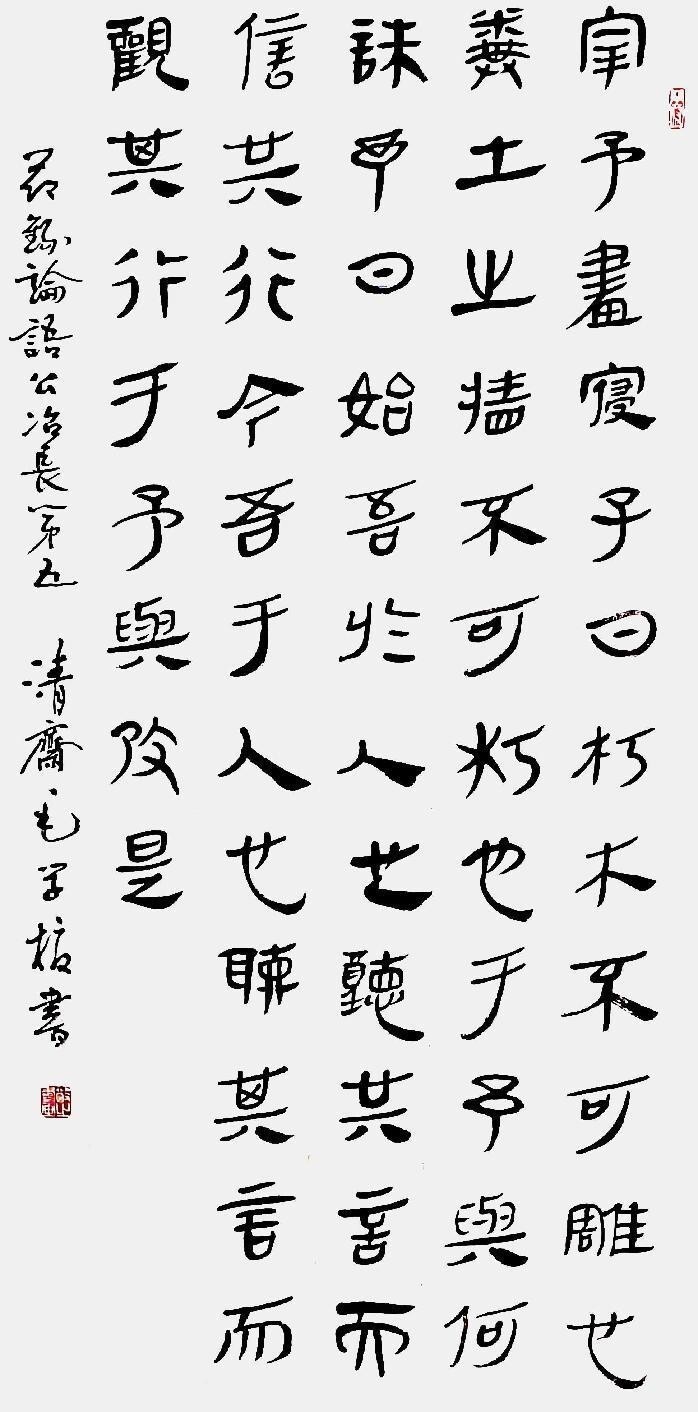 宰予晝寢子曰朽木不可雕也
糞土之墻不可杇也于予與何
誅子曰始吾於人也聽其言而
信其行今吾于人也聽其言而
觀其行于予與改是
節錄論語公冶長第五 清齋毛學格書